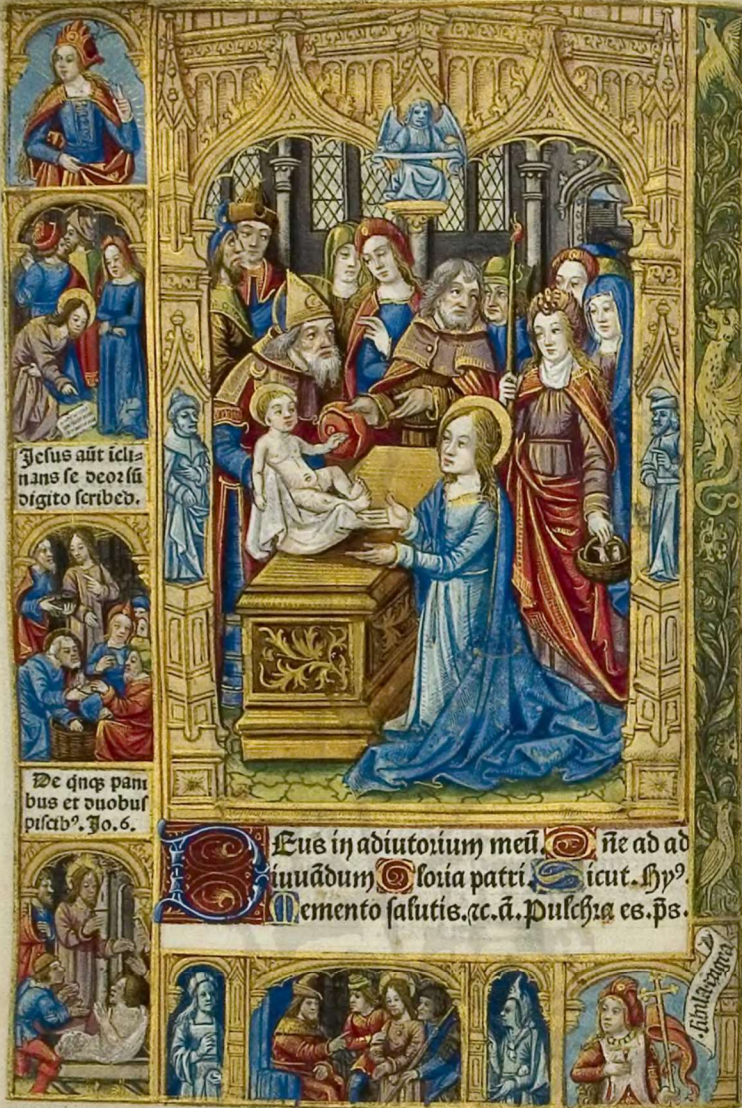 Jesus aūt īcli=
nans se deorsū
digito scribeb.
De q̇nq̨ pani
bus et duobus
piscibꝰ. Jo. 6.
DEus in adiutorium meū. Dn̄e ad ad
iuuādum Gloria patri. Sicut. Hyꝰ.
Memento salutis. ⁊c. ā. Pulchra es. p̄s.
sibila